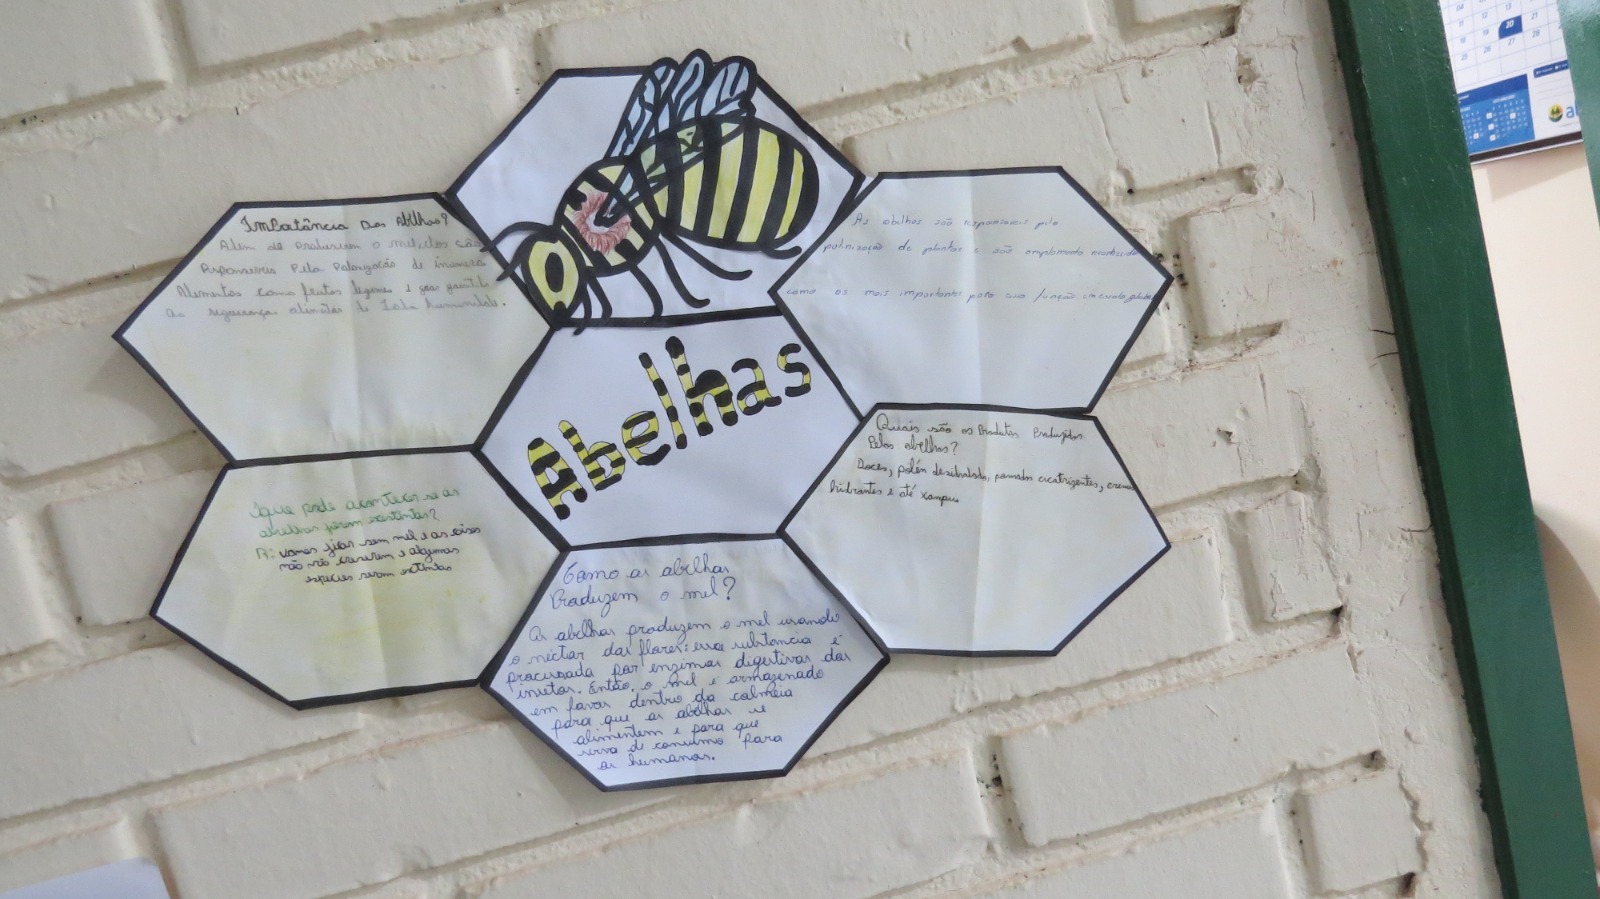 Imbortância Das Abelhas?
Além de Produzirem o mel, elas são
Responsaveis Pela Polonização de inumeros
Alimentos como frutas legumes e
As segurança alimentar de Toda humanidade.
As abelhas são responsaveis pela
polinização de plantas e são amplamente
como os mais importantes para sua função
Abelhas
Quais são os Produtos Produzidos
Pelas abelhas?
Doces, polén desidratado, pomadas cicatrizantes, cremes
hidrantes e até xampu.
Oque pode acontecer se as
abelhas forem exstintas?
R: vamos ficar sem mel e as
não vão crescerem e algumas
especies seram extintas
Como as abelhas
Produzem o mel?
As abelhas produzem o mel usando
o néctar das flores: essa substancia é
procusada por enzimas digestivas dos
insetos. Então, o mel é armazinado
em favos dentro da colmeia
para que as abelhas se
alimentem e para que
sirva de consumo para
os humanos.